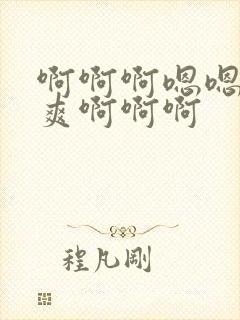 啊啊啊嗯嗯
爽啊啊啊
程凡刚